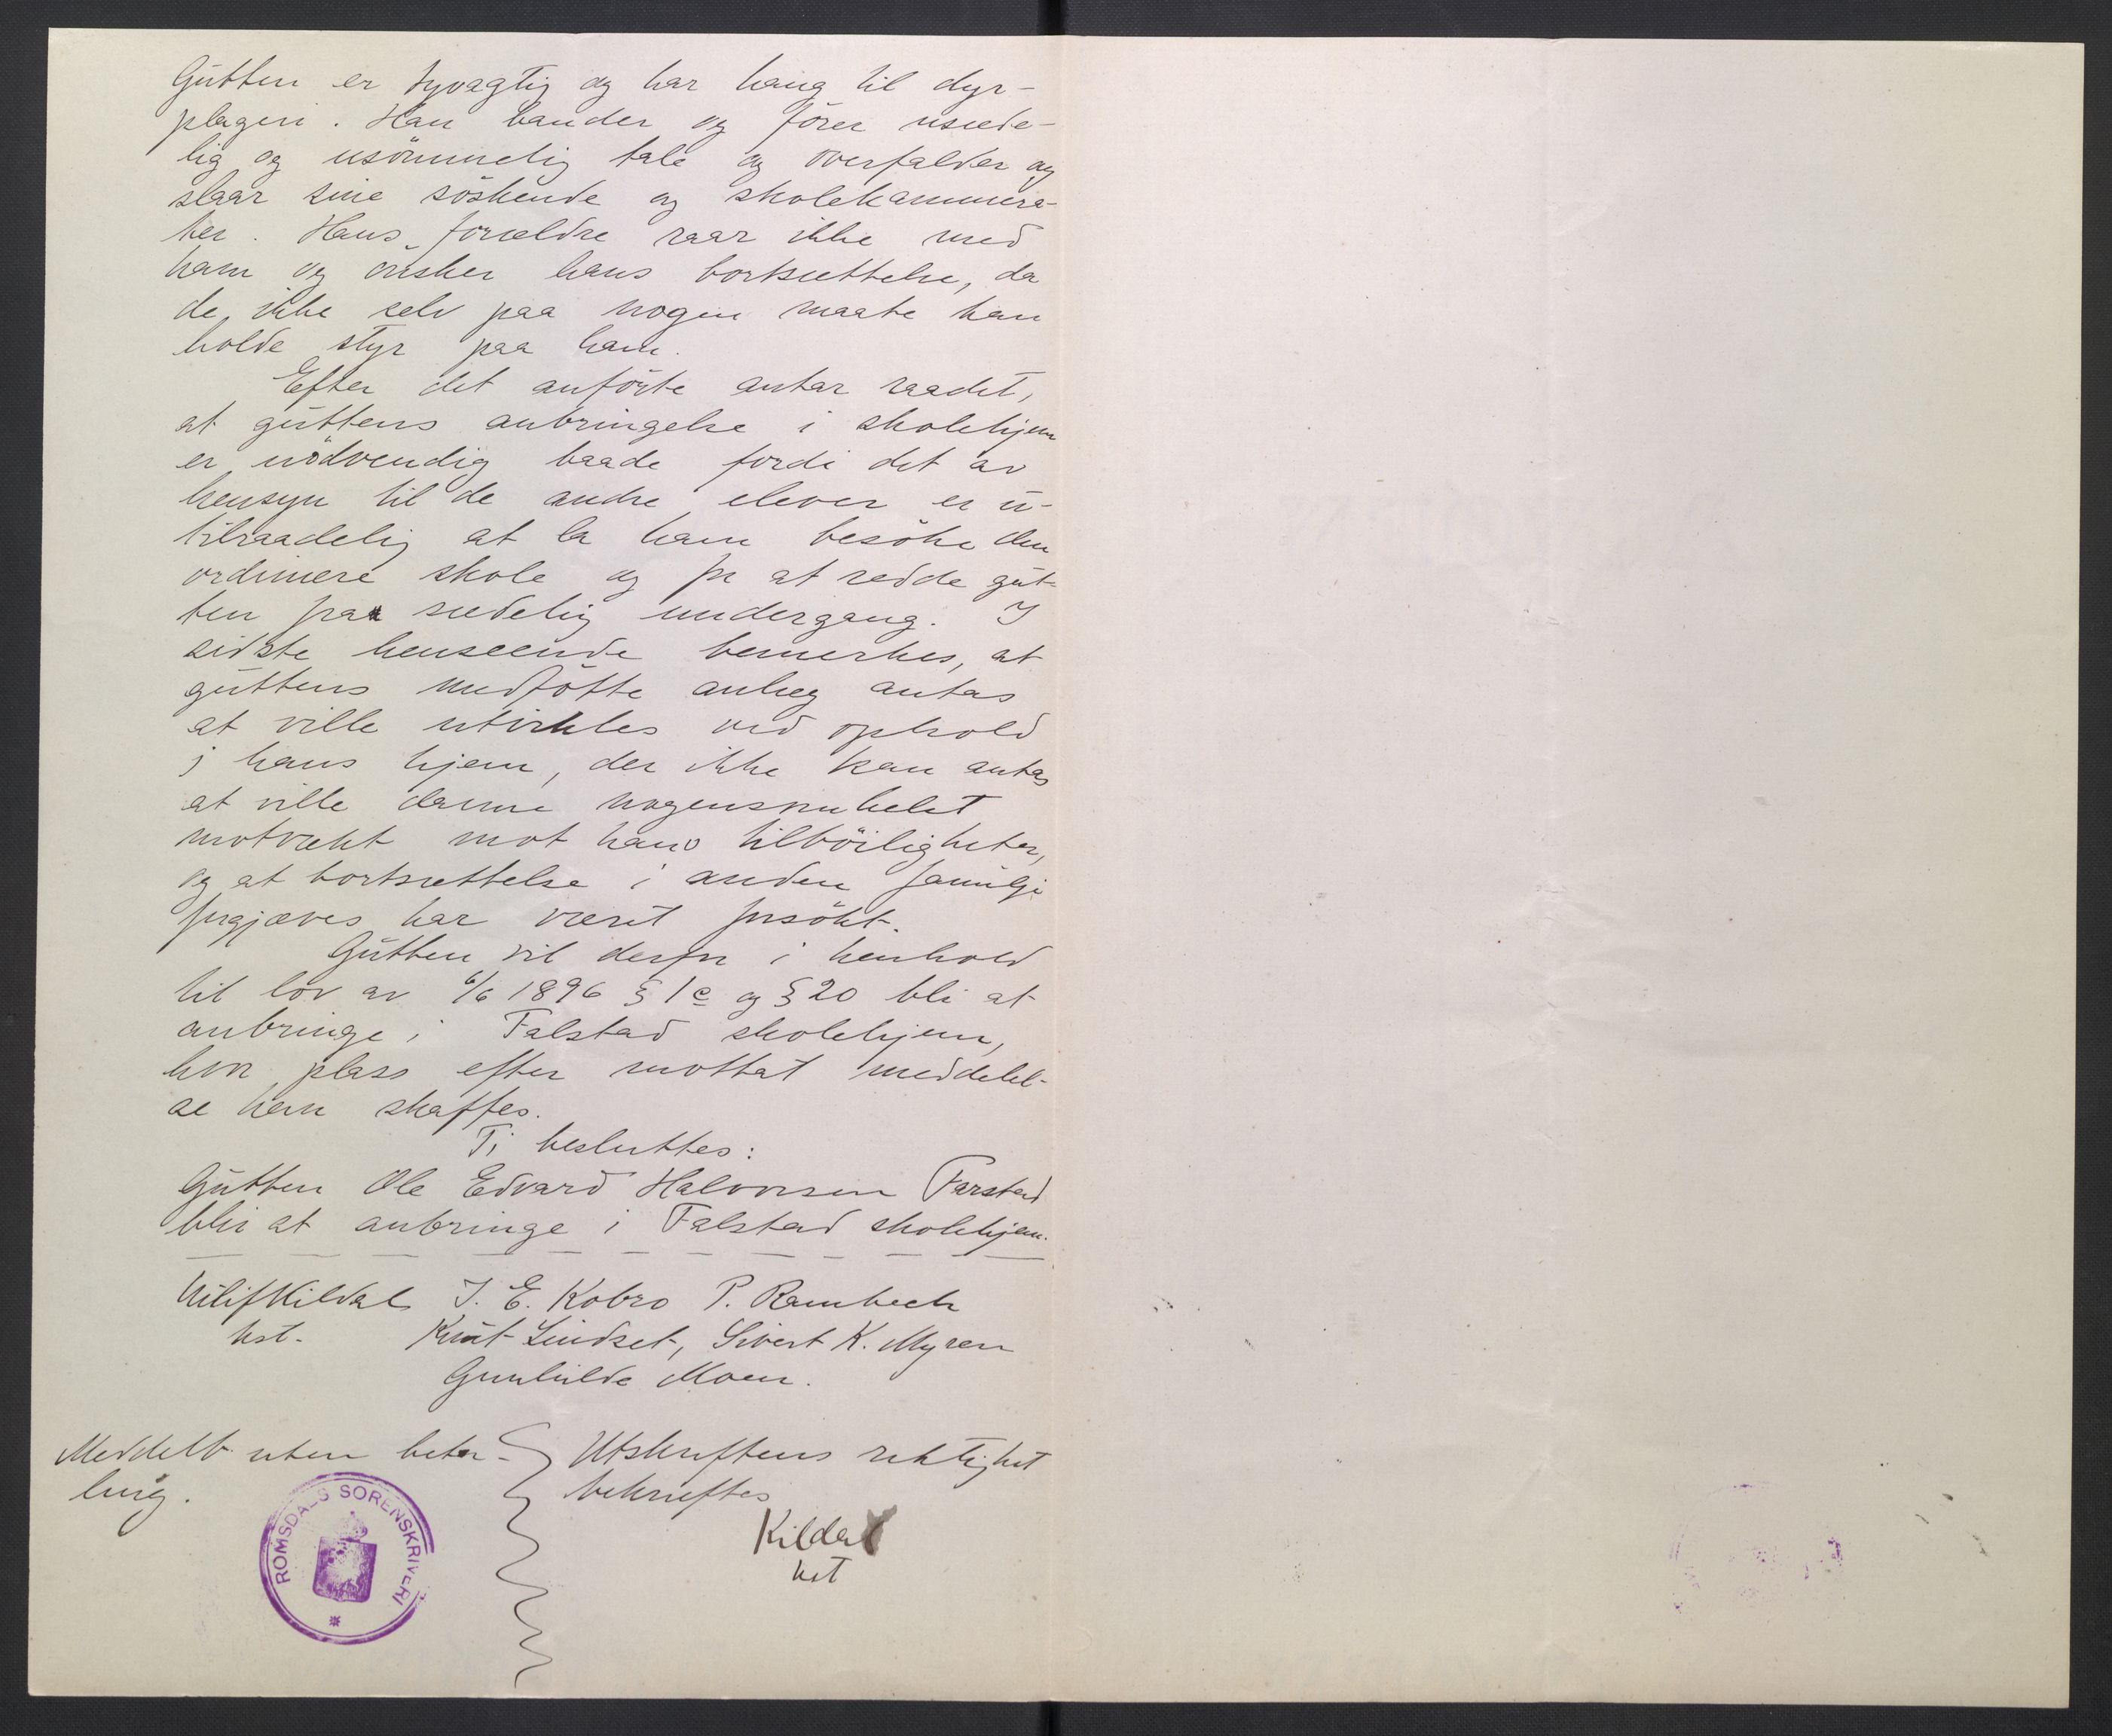 Gutten er tyvagtig og har hang til dyr-
plageri. Han bander og fører usæde-
lig og usømmelig tale og overfalder og
slaar sine søskende og skolekammera-
ter. Hans forældre raar ikke med
ham og ønsker hans bortsættelse, da
de ikke selv paa nogen maate kan
holde styr paa ham.
Efter det anførte antar raadet,
at guttens anbringelse i skolehjem
er nødvendig baade fordi det av
hensyn til de andre elever er u-
tilraadelig at la ham besøke den
ordinære skole og for at redde gut-
ten fra sædelig undergang. I
sidste henseende bemerkes, at
guttens medfødte anlæg antas
at ville utvikles ved ophold
i hans hjem, der ikke kan antas
at ville danne nogensomhelst
motvekt mot hans tilbøiligheter,
og at bortsættelse i anden familje
forgjæves har været forsøkt.
Gutten vil derfor i henhold
til lov av 6/6 1896 § 1 c og § 20 bli at
anbringe i Falstad skolehjem,
hvor plass efter mottat meddelel-
se kan skaffes.
Ti besluttes:
Gutten Ole Edvard Halvorsen Farstad
blir at anbringe i Falstad skolehjem.
Kildal J. E. Kobro P. Rambech
kst. Knut Lindset, Sivert K. Myren
Gunhilde Moen.
Meddelt uten beta-
ling.
Utskriftens riktighet
bekræftes
Kildal
kst
ROMSDALS SORENSKRIVERI